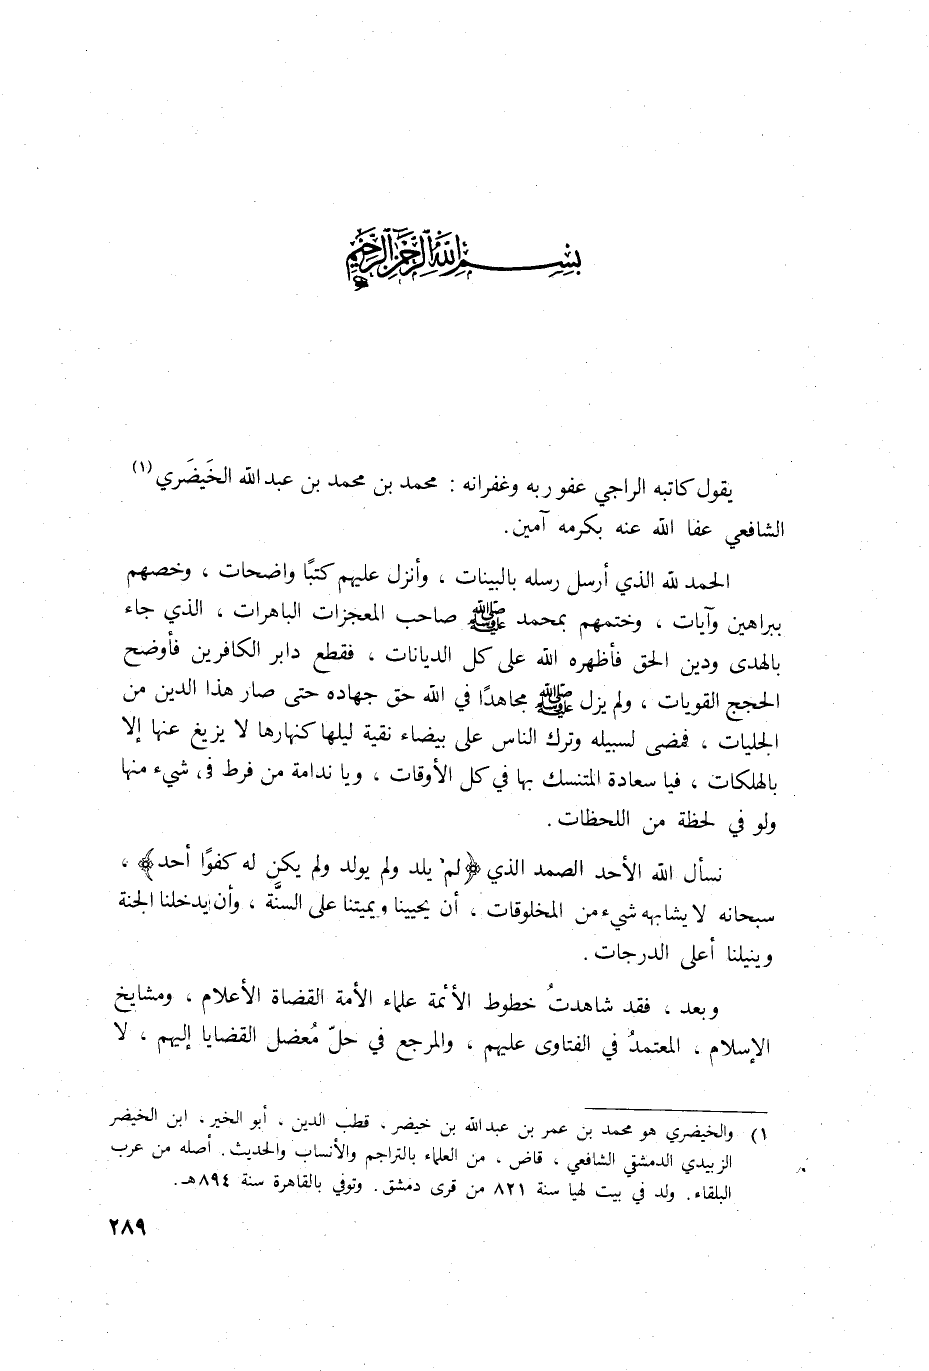 بسم الله الرحمن الرحيم
يقول كاتبه الراجي عفو ربه وغفرانه : محمد بن محمد بن عبد الله الخَيضَري (١)
الشافعي عفا الله عنه بكرمه آمين .
الحمد لله الذي أرسل رسله بالبينات ، وأنزل عليهم كتبًا واضحات ، وخصهم
ببراهين وآيات ، وختمهم بمحمد ﷺ صاحب المعجزات الباهرات ، الذي جاء
بالهدى ودين الحق فأظهره الله على كل الديانات ، فقطع دابر الكافرين فأوضح
الحجج القويات ، ولم يزل ﷺ مجاهدًا في الله حق جهاده حتى صار هذا الدين من
الجليات ، فمضى لسبيله وترك الناس على بيضاء نقية ليلها كنهارها لا يزيغ عنها إلا
بالهلكات ، فيا سعادة المتنسك بها في كل الأوقات ، ويا ندامة من فرط في شيء منها
ولو في لحظة من اللحظات .
نسأل الله الأحد الصمد الذي ﴿لم يلد ولم يولد ولم يكن له كفوًا أحد﴾ ،
سبحانه لا يشابهه شيء من المخلوقات ، أن يحيينا ويميتنا على السنَّة ، وأن يدخلنا الجنة
وينيلنا أعلى الدرجات .
وبعد ، فقد شاهدتُ خطوط الأئمة علماء الأمة القضاة الأعلام ، ومشايخ
الإسلام ، المعتمدُ في الفتاوى عليهم ، والمرجع في حلّ مُعضل القضايا إليهم ، لا
١) والخيضري هو محمد بن عمر بن عبدالله بن خيضر ، قطب الدين ، أبو الخير ، ابن الخيضر
الزبيدي الدمشقي الشافعي ، قاض ، من العلماء بالتراجم والأنساب والحديث . أصله من عرب
البلقاء . ولد في بيت لهيا سنة ٨٢١ من قرى دمشق . وتوفي بالقاهرة سنة ٨٩٤هـ .
٢٨٩